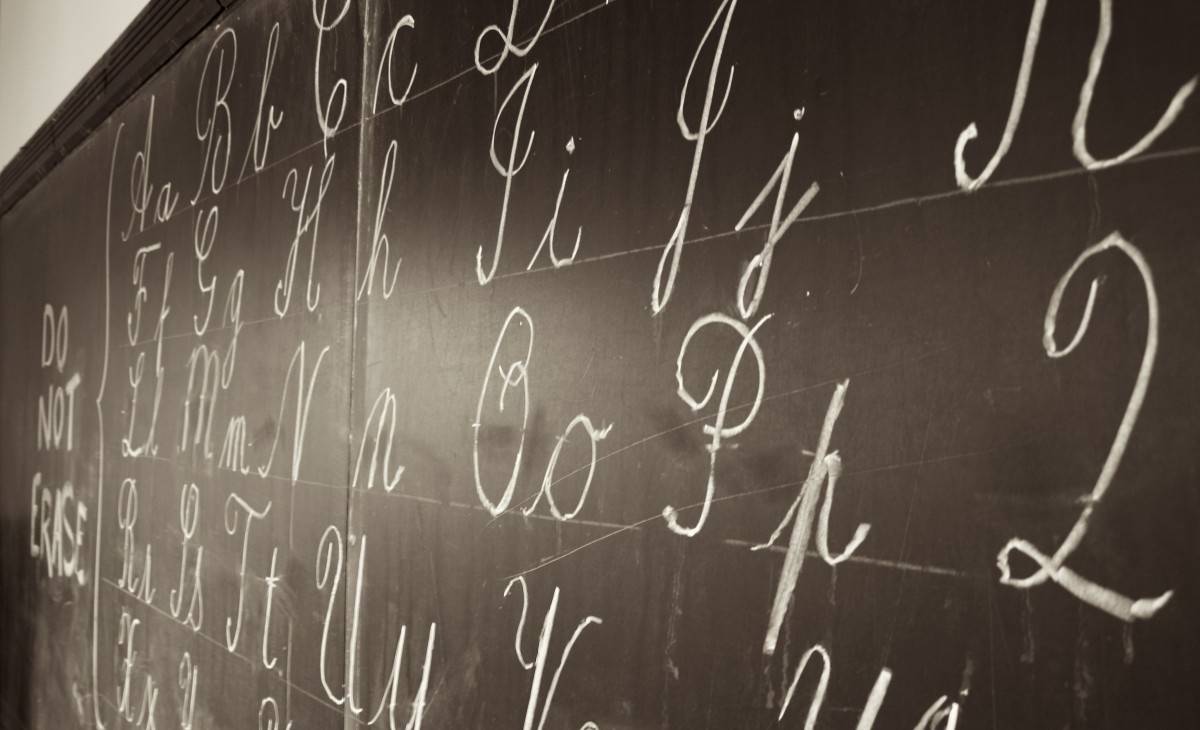 DO
NOT
ERASE
A a B b C c D
F f G g H h I i J j K
L l M m N n O o P p Q
R r S s T t U u V
X x Y